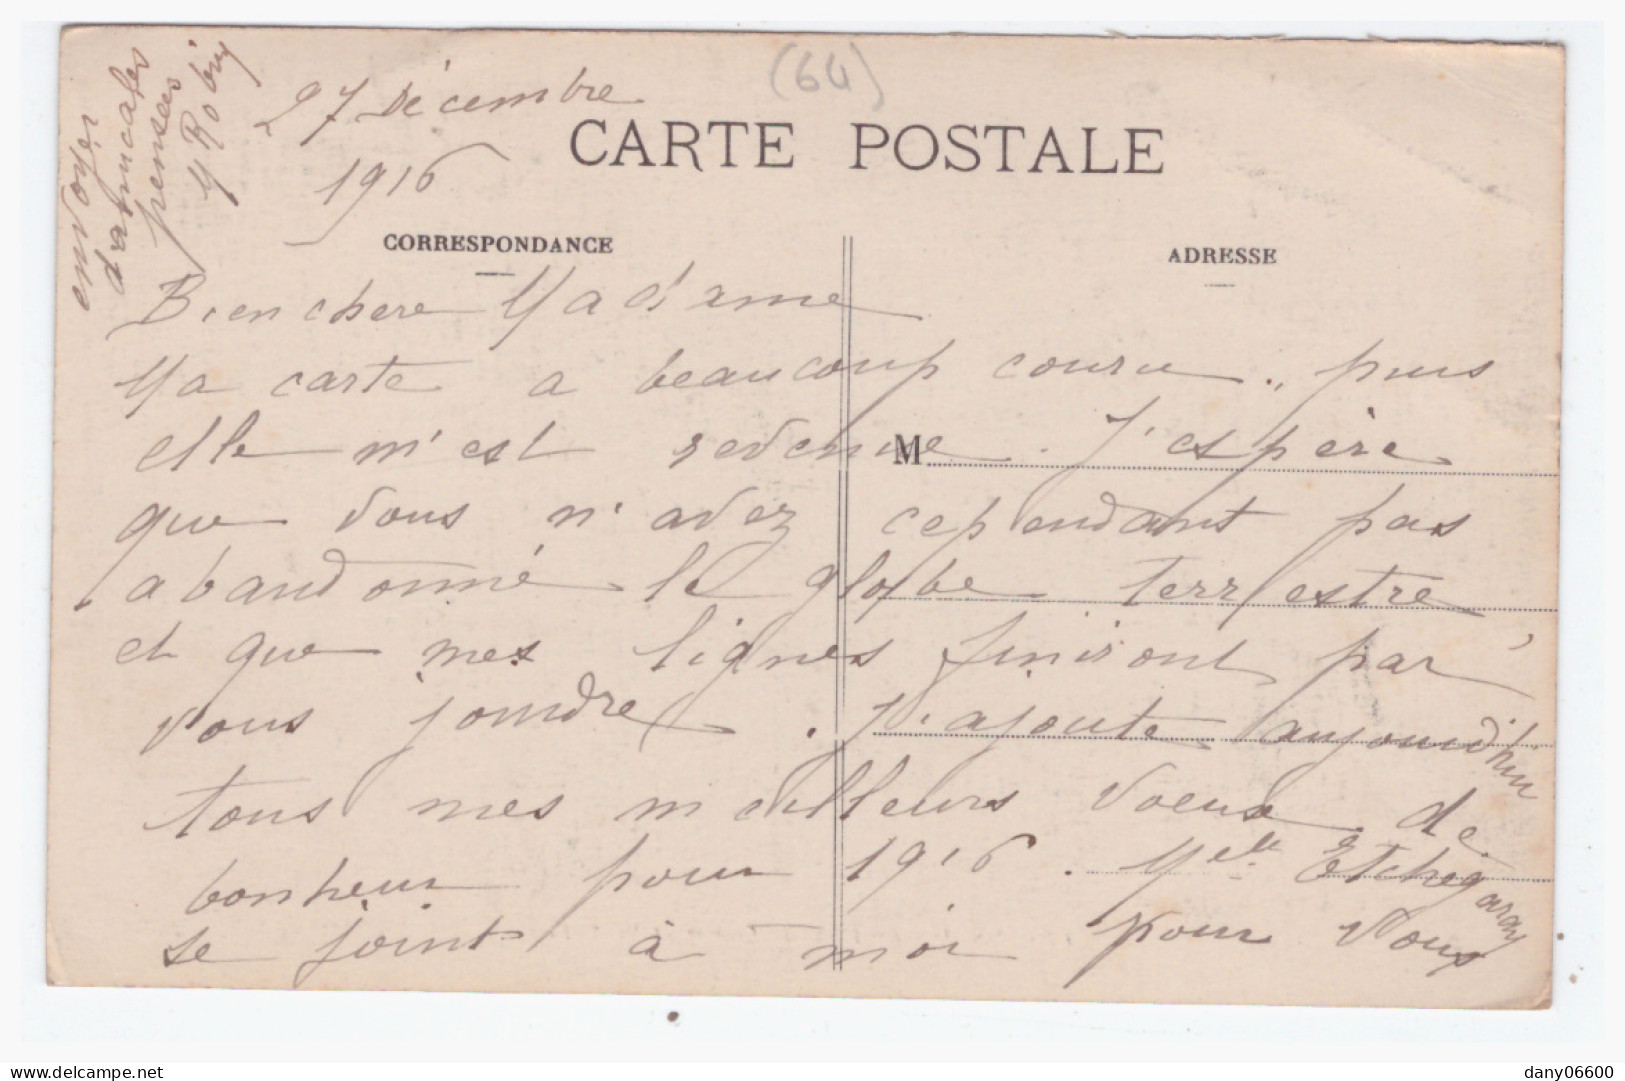 (64)
27 Décembre
1916
CARTE POSTALE
CORRESPONDANCE
ADRESSE
M
Bien chère Madame
Ma carte a beaucoup couru .. puis
elle m'est revenue. J'espère
que vous n'avez cependant pas
abandonné le globe terrestre
et que mes lignes finiront par
vous joindre. J'ajoute aujourd'hui
tous mes meilleurs voeux de
bonheur pour 1916. Melle Etchegaray
se joint à moi pour vous
envoyer
d'amicales
pensées
M Robin
www.delcampe.net
dany06600